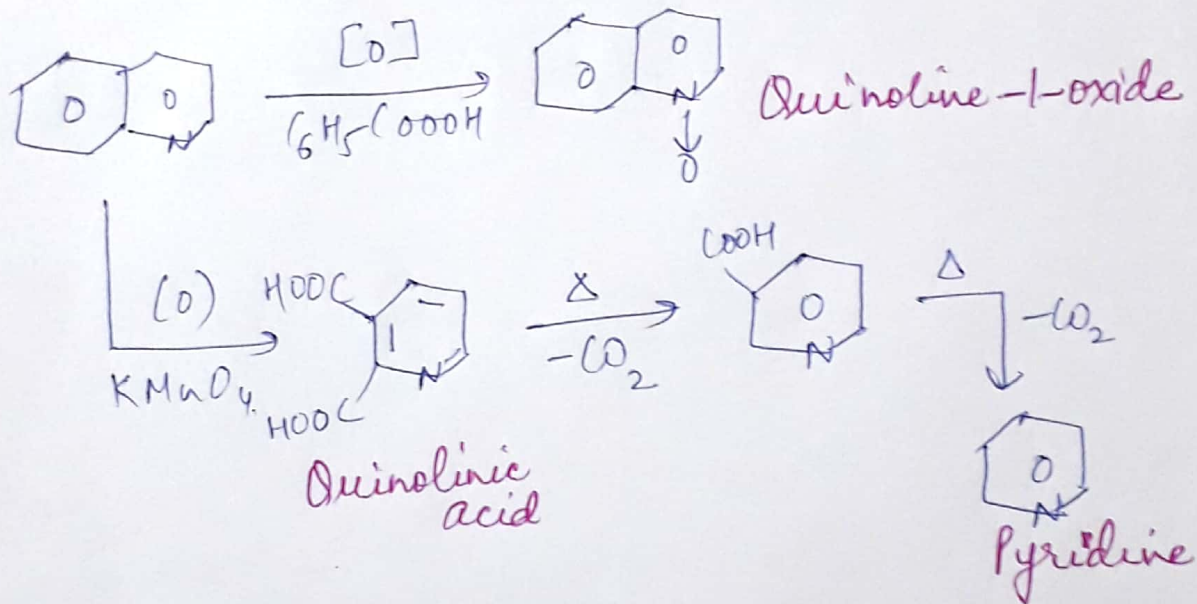 [O]
C6H5-COOOH
O O
N
O O
N
↓
O
Quinoline-1-oxide
(O)
KMnO4.
HOOC
HOOC
N
Quinolinic
acid
Δ
-CO2
COOH
O
N
Δ
-CO2
O
N
Pyridine